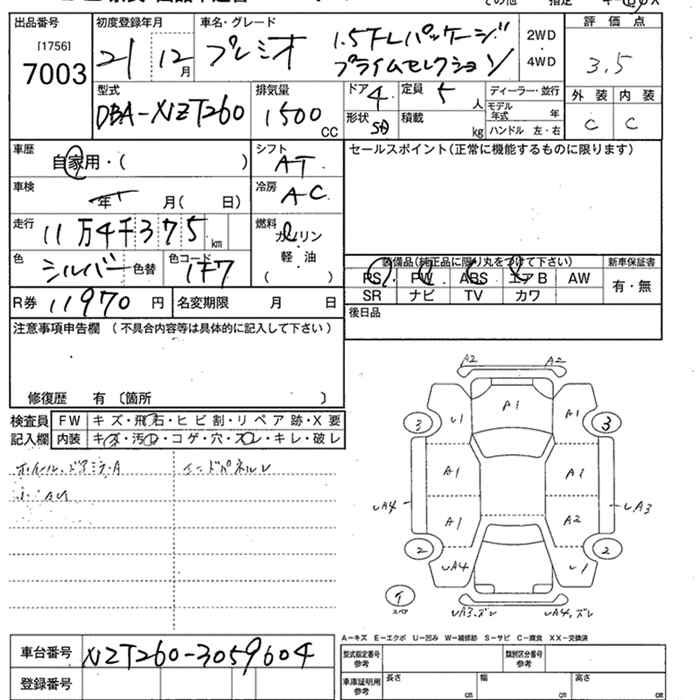 出品番号
[1756]
7003
初度登録年月
21 12月
車名・グレード
プレミオ
1.5FLパッケージ
プライムセレクション
2WD
・
4WD
評価点
3.5
外装 内装
C C
型式
DBA-NZT260
排気量
1500 CC
ドア 4
定員 5人
形状 SD
積載 kg
ディーラー・並行
モデル年式 年
ハンドル 左・右
車歴
自家用・( )
シフト
AT
セールスポイント(正常に機能するものに限ります)
車検
年 月( 日)
冷房
AC
走行
11万4千375km
燃料
ガソリン
軽油
( )
色
シルバー 色替
色コード
1F7
装備品(純正品に限り丸をつけて下さい)
新車保証書
PS PW ABS エアB AW
有・無
SR ナビ TV カワ
R券 11970 円
名変期限 月 日
後日品
注意事項申告欄(不具合内容等は具体的に記入して下さい)
修復歴 有〔箇所 〕
検査員
記入欄
FW キズ・飛石・ヒビ割・リペア跡・X要
内装 キズ・汚レ・コゲ・穴・スレ・キレ・破レ
A2 A2
U1 A1
3 3
A1 A1
UA4 UA3
A1 A2
2 2
UA4 U1
イ
スペア
UA3.ズレ UA4.ズレ
A-キズ E-エクボ U-凹み W-補修跡 S-サビ C-腐食 XX-交換済
車台番号
NZT260-3059604
登録番号
型式指定番号
参考
類別区分番号
参考
車庫証明用
参考
長さ cm
幅 cm
高さ cm